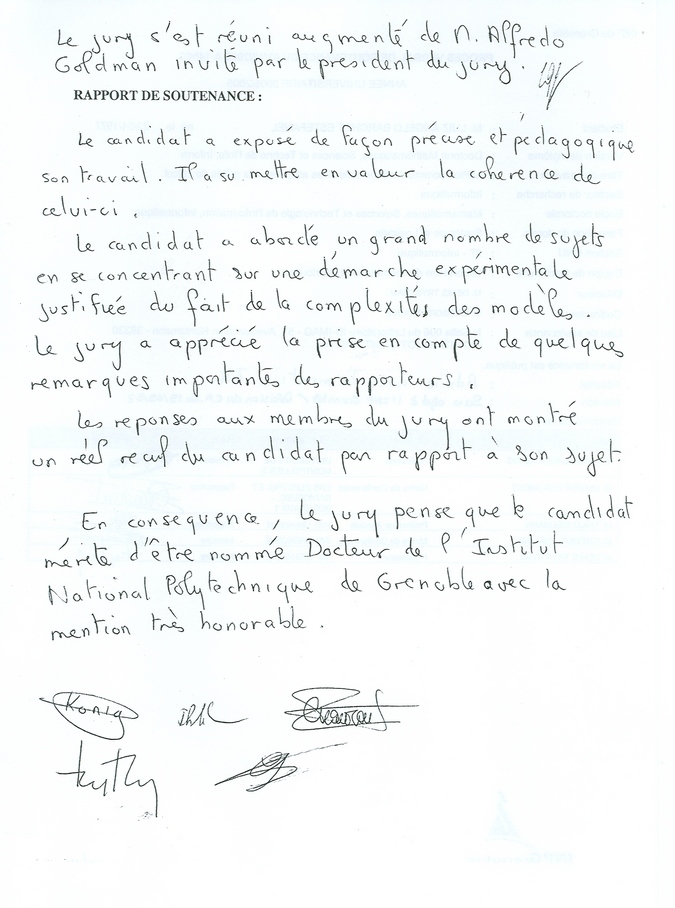 Le jury s'est réuni augmenté de M. Alfredo
Goldman invité par le président du jury.
RAPPORT DE SOUTENANCE :
Le candidat a exposé de façon précise et pédagogique
son travail. Il a su mettre en valeur la coherence de
celui-ci.
Le candidat a abordé un grand nombre de sujets
en se concentrant sur une démarche expérimentale
justifiée du fait de la complexités des modèles.
Le jury a apprécié la prise en compte de quelques
remarques importantes des rapporteurs.
Les reponses aux membres du jury ont montré
un réel recul du candidat par rapport à son sujet.
En consequence, le jury pense que le candidat
mérite d'être nommé Docteur de l'Institut
National Polytechnique de Grenoble avec la
mention très honorable.
König